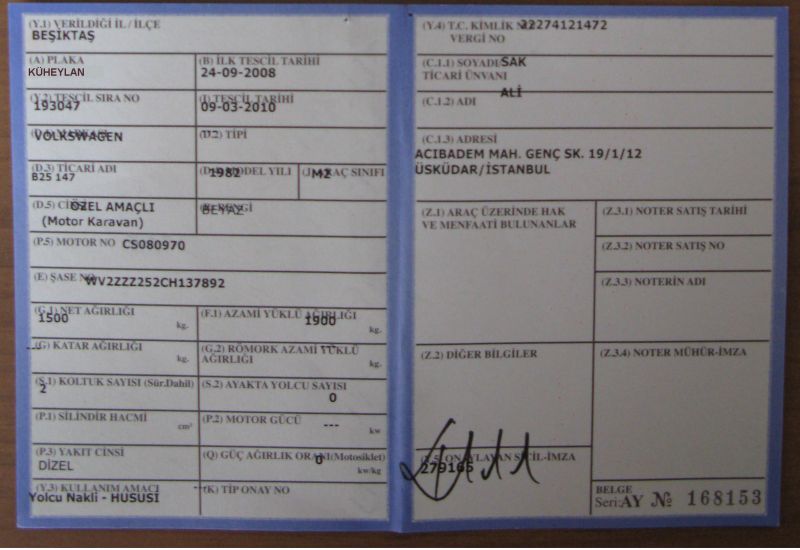 (Y.1) VERİLDİĞİ İL / İLÇE
BEŞİKTAŞ
(A) PLAKA
KÜHEYLAN
(B) İLK TESCİL TARİHİ
24-09-2008
(Y.2) TESCİL SIRA NO
193047
(I) TESCİL TARİHİ
09-03-2010
VOLKSWAGEN
(D.2) TİPİ
(D.3) TİCARİ ADI
B25 147
MODEL YILI
1982
ARAÇ SINIFI
M2
(D.5)
ÖZEL AMAÇLI
(Motor Karavan)
BEYAZ
(P.5) MOTOR NO CS080970
(E) ŞASE NO
WV2ZZZ252CH137892
(G.1) NET AĞIRLIĞI
1500
kg.
(F.1) AZAMİ YÜKLÜ AĞIRLIĞI
1900
kg.
(G) KATAR AĞIRLIĞI
---
kg.
(G.2) RÖMORK AZAMİ YÜKLÜ
AĞIRLIĞI
---
kg.
(S.1) KOLTUK SAYISI (Sür.Dahil)
2
(S.2) AYAKTA YOLCU SAYISI
0
(P.1) SİLİNDİR HACMİ
cm³
(P.2) MOTOR GÜCÜ
---
kw
(P.3) YAKIT CİNSİ
DİZEL
(Q) GÜÇ AĞIRLIK ORANI(Motosiklet)
0
kw/kg
(Y.3) KULLANIM AMACI
Yolcu Nakli - HUSUSİ
(K) TİP ONAY NO
(Y.4) T.C. KİMLİK NO
32274121472
VERGİ NO
(C.1.1) SOYADI
SAK
TİCARİ ÜNVANI
ALİ
(C.1.2) ADI
(C.1.3) ADRESİ
ACIBADEM MAH. GENÇ SK. 19/1/12
ÜSKÜDAR/İSTANBUL
(Z.1) ARAÇ ÜZERİNDE HAK
VE MENFAATİ BULUNANLAR
(Z.3.1) NOTER SATIŞ TARİHİ
(Z.3.2) NOTER SATIŞ NO
(Z.3.3) NOTERİN ADI
(Z.2) DİĞER BİLGİLER
(Z.3.4) NOTER MÜHÜR-İMZA
(Y.5) ONAYLAYAN SİCİL-İMZA
279165
BELGE
Seri: AY № 168153